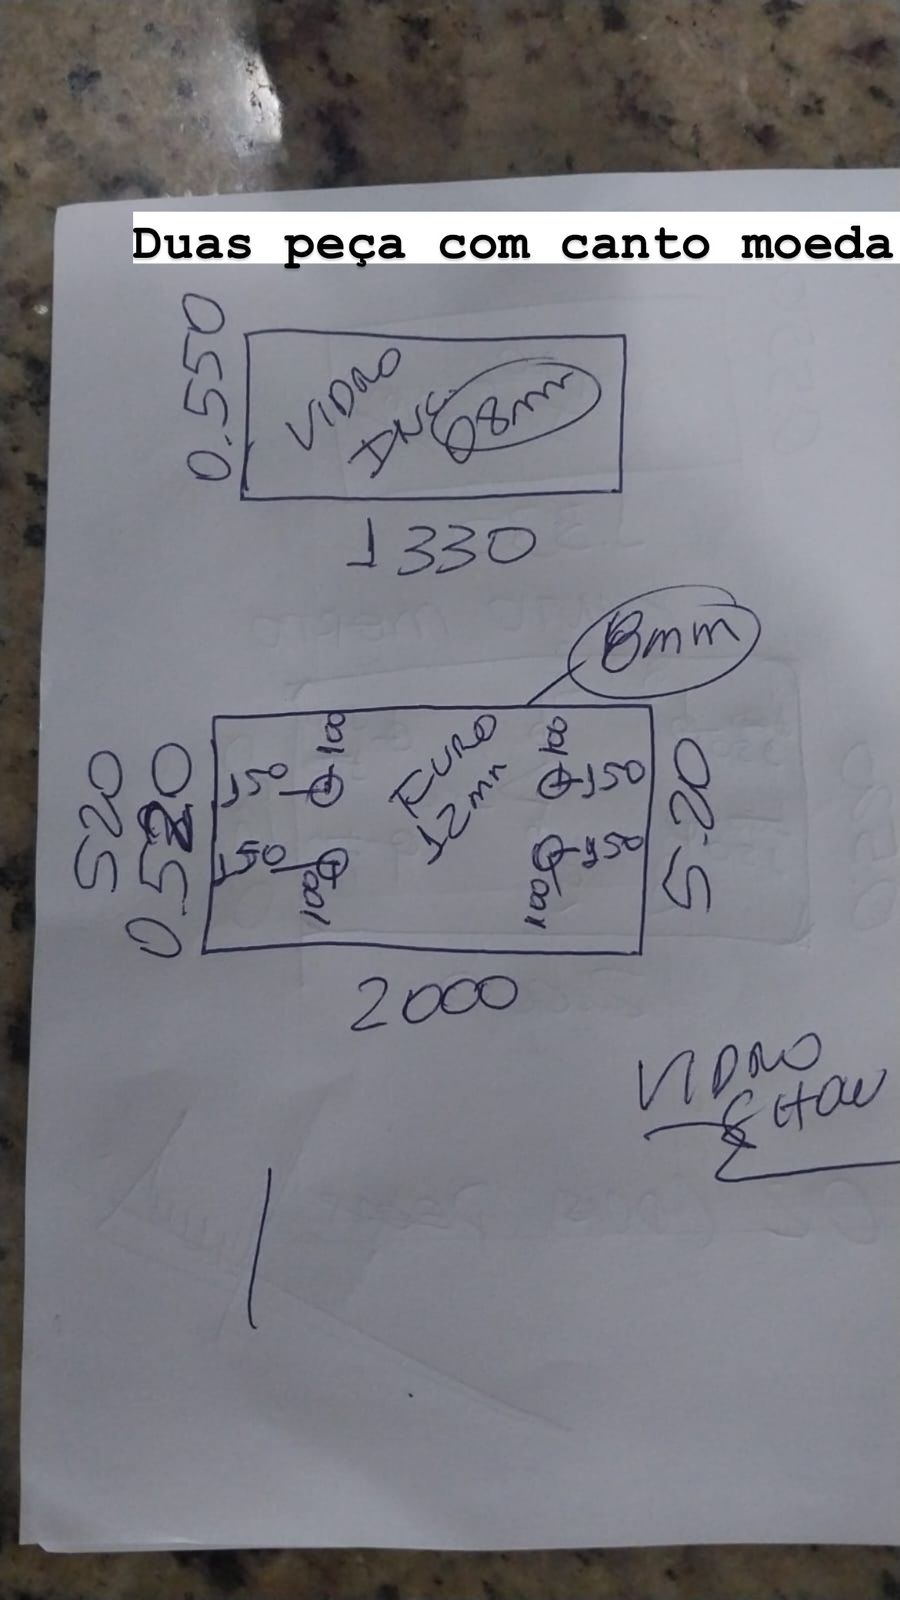 Duas peça com canto moeda
0.550
VIDRO
INC 08mm
1330
8mm
520
0.520
150
100
FURO
12mm
100
150
150
100
100
150
5.20
2000
VIDRO